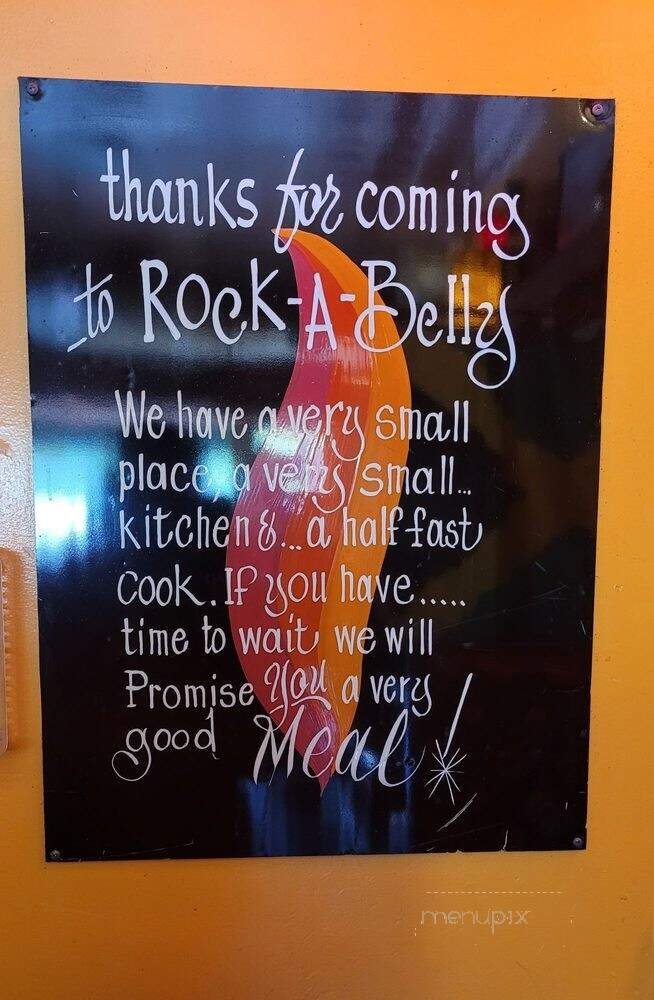 thanks for coming
to Rock-A-Belly
We have a very small
place, a very small...
kitchen &... a half fast
cook. If you have.....
time to wait we will
Promise You a very
good Meal!
menupix